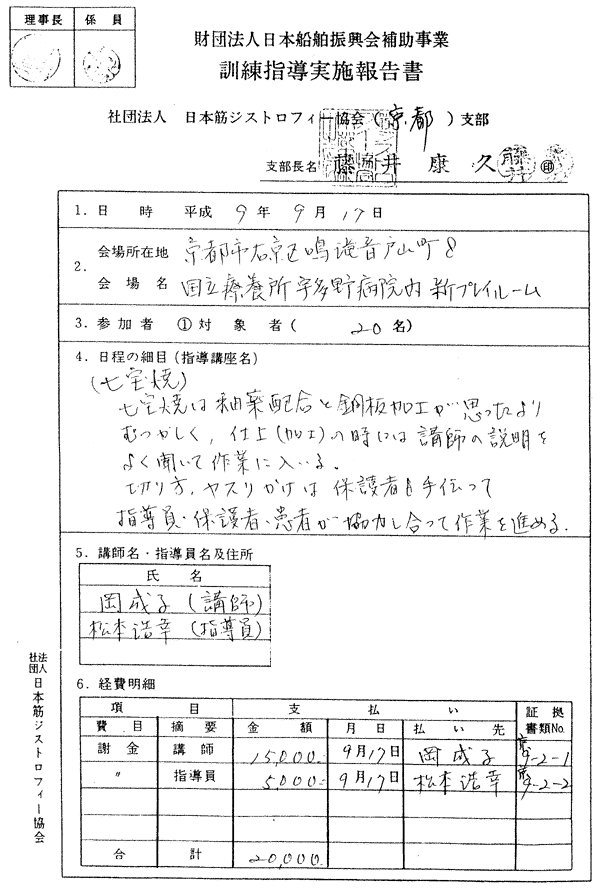 理事長 係員
財団法人日本船舶振興会補助事業
訓練指導実施報告書
社団法人 日本筋ジストロフィー協会(京都)支部
支部長名 藤井康久 印
1.日 時 平成 9年 9月 17日
2.会場所在地 京都市右京区鳴滝音戸山町8
会場名 国立療養所宇多野病院内 新プレイルーム
3.参加者 ①対象者( 20名)
4.日程の細目(指導講座名)
(七宝焼)
七宝焼は釉薬配合と銅板加工が思ったより
むつかしく、仕上(加工)の時には講師の説明を
よく聞いて作業に入いる.
切り方、ヤスリかけは保護者も手伝って
指導員・保護者・患者が協力し合って作業を進める.
5.講師名・指導員名及住所
氏 名
岡成子(講師)
松本浩幸(指導員)
6.経費明細
項 目 支 払 い 証拠
費目 摘要 金額 月日 払い先 書類No.
謝金 講師 15,000. 9月17日 岡成子 京9-2-1
〃 指導員 5,000- 9月17日 松本浩幸 京9-2-2
合 計 20,000.
社団法人 日本筋ジストロフィー協会